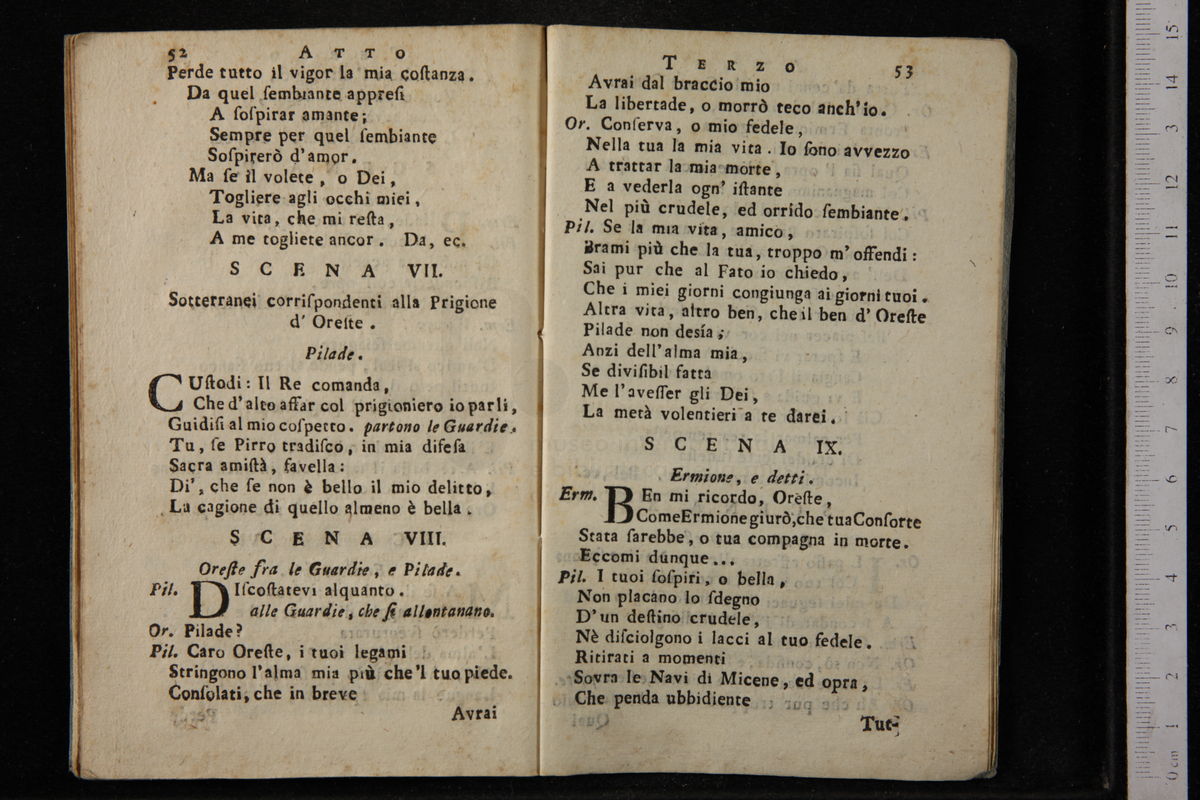 52 ATTO
Perde tutto il vigor la mia coſtanza.
Da quel ſembiante appreſi
A ſoſpirar amante;
Sempre per quel ſembiante
Soſpirerò d'amor.
Ma ſe il volete, o Dei,
Togliere agli occhi miei,
La vita, che mi reſta,
A me togliete ancor. Da, ec.
SCENA VII.
Sotterranei corriſpondenti alla Prigione
d' Oreſte.
Pilade.
CUſtodi: Il Re comanda,
Che d'alto affar col prigioniero io parli,
Guidiſi al mio coſpetto. partono le Guardie.
Tu, ſe Pirro tradiſco, in mia difeſa
Sacra amiſtà, favella:
Di', che ſe non è bello il mio delitto,
La cagione di quello almeno è bella.
SCENA VIII.
Oreſte fra le Guardie, e Pilade.
Pil. DIſcoſtatevi alquanto.
alle Guardie, che ſi allontanano.
Or. Pilade?
Pil. Caro Oreſte, i tuoi legami
Stringono l'alma mia più che 'l tuo piede.
Conſolati, che in breve
Avrai
TERZO 53
Avrai dal braccio mio
La libertade, o morrò teco anch'io.
Or. Conſerva, o mio fedele,
Nella tua la mia vita. Io ſono avvezzo
A trattar la mia morte,
E a vederla ogn' iſtante
Nel più crudele, ed orrido ſembiante.
Pil. Se la mia vita, amico,
Brami più che la tua, troppo m' offendi:
Sai pur che al Fato io chiedo,
Che i miei giorni congiunga ai giorni tuoi.
Altra vita, altro ben, che il ben d' Oreſte
Pilade non desía;
Anzi dell'alma mia,
Se diviſibil fatta
Me l'aveſſer gli Dei,
La metà volentieri a te darei.
SCENA IX.
Ermione, e detti.
Erm. BEn mi ricordo, Oreſte,
Come Ermione giurò, che tua Conſorte
Stata ſarebbe, o tua compagna in morte.
Eccomi dunque...
Pil. I tuoi ſoſpiri, o bella,
Non placano lo ſdegno
D'un deſtino crudele,
Nè diſciolgono i lacci al tuo fedele.
Ritirati a momenti
Sovra le Navi di Micene, ed opra,
Che penda ubbidiente
Tut-
0 cm 1 2 3 4 5 6 7 8 9 10 11 12 13 14 15